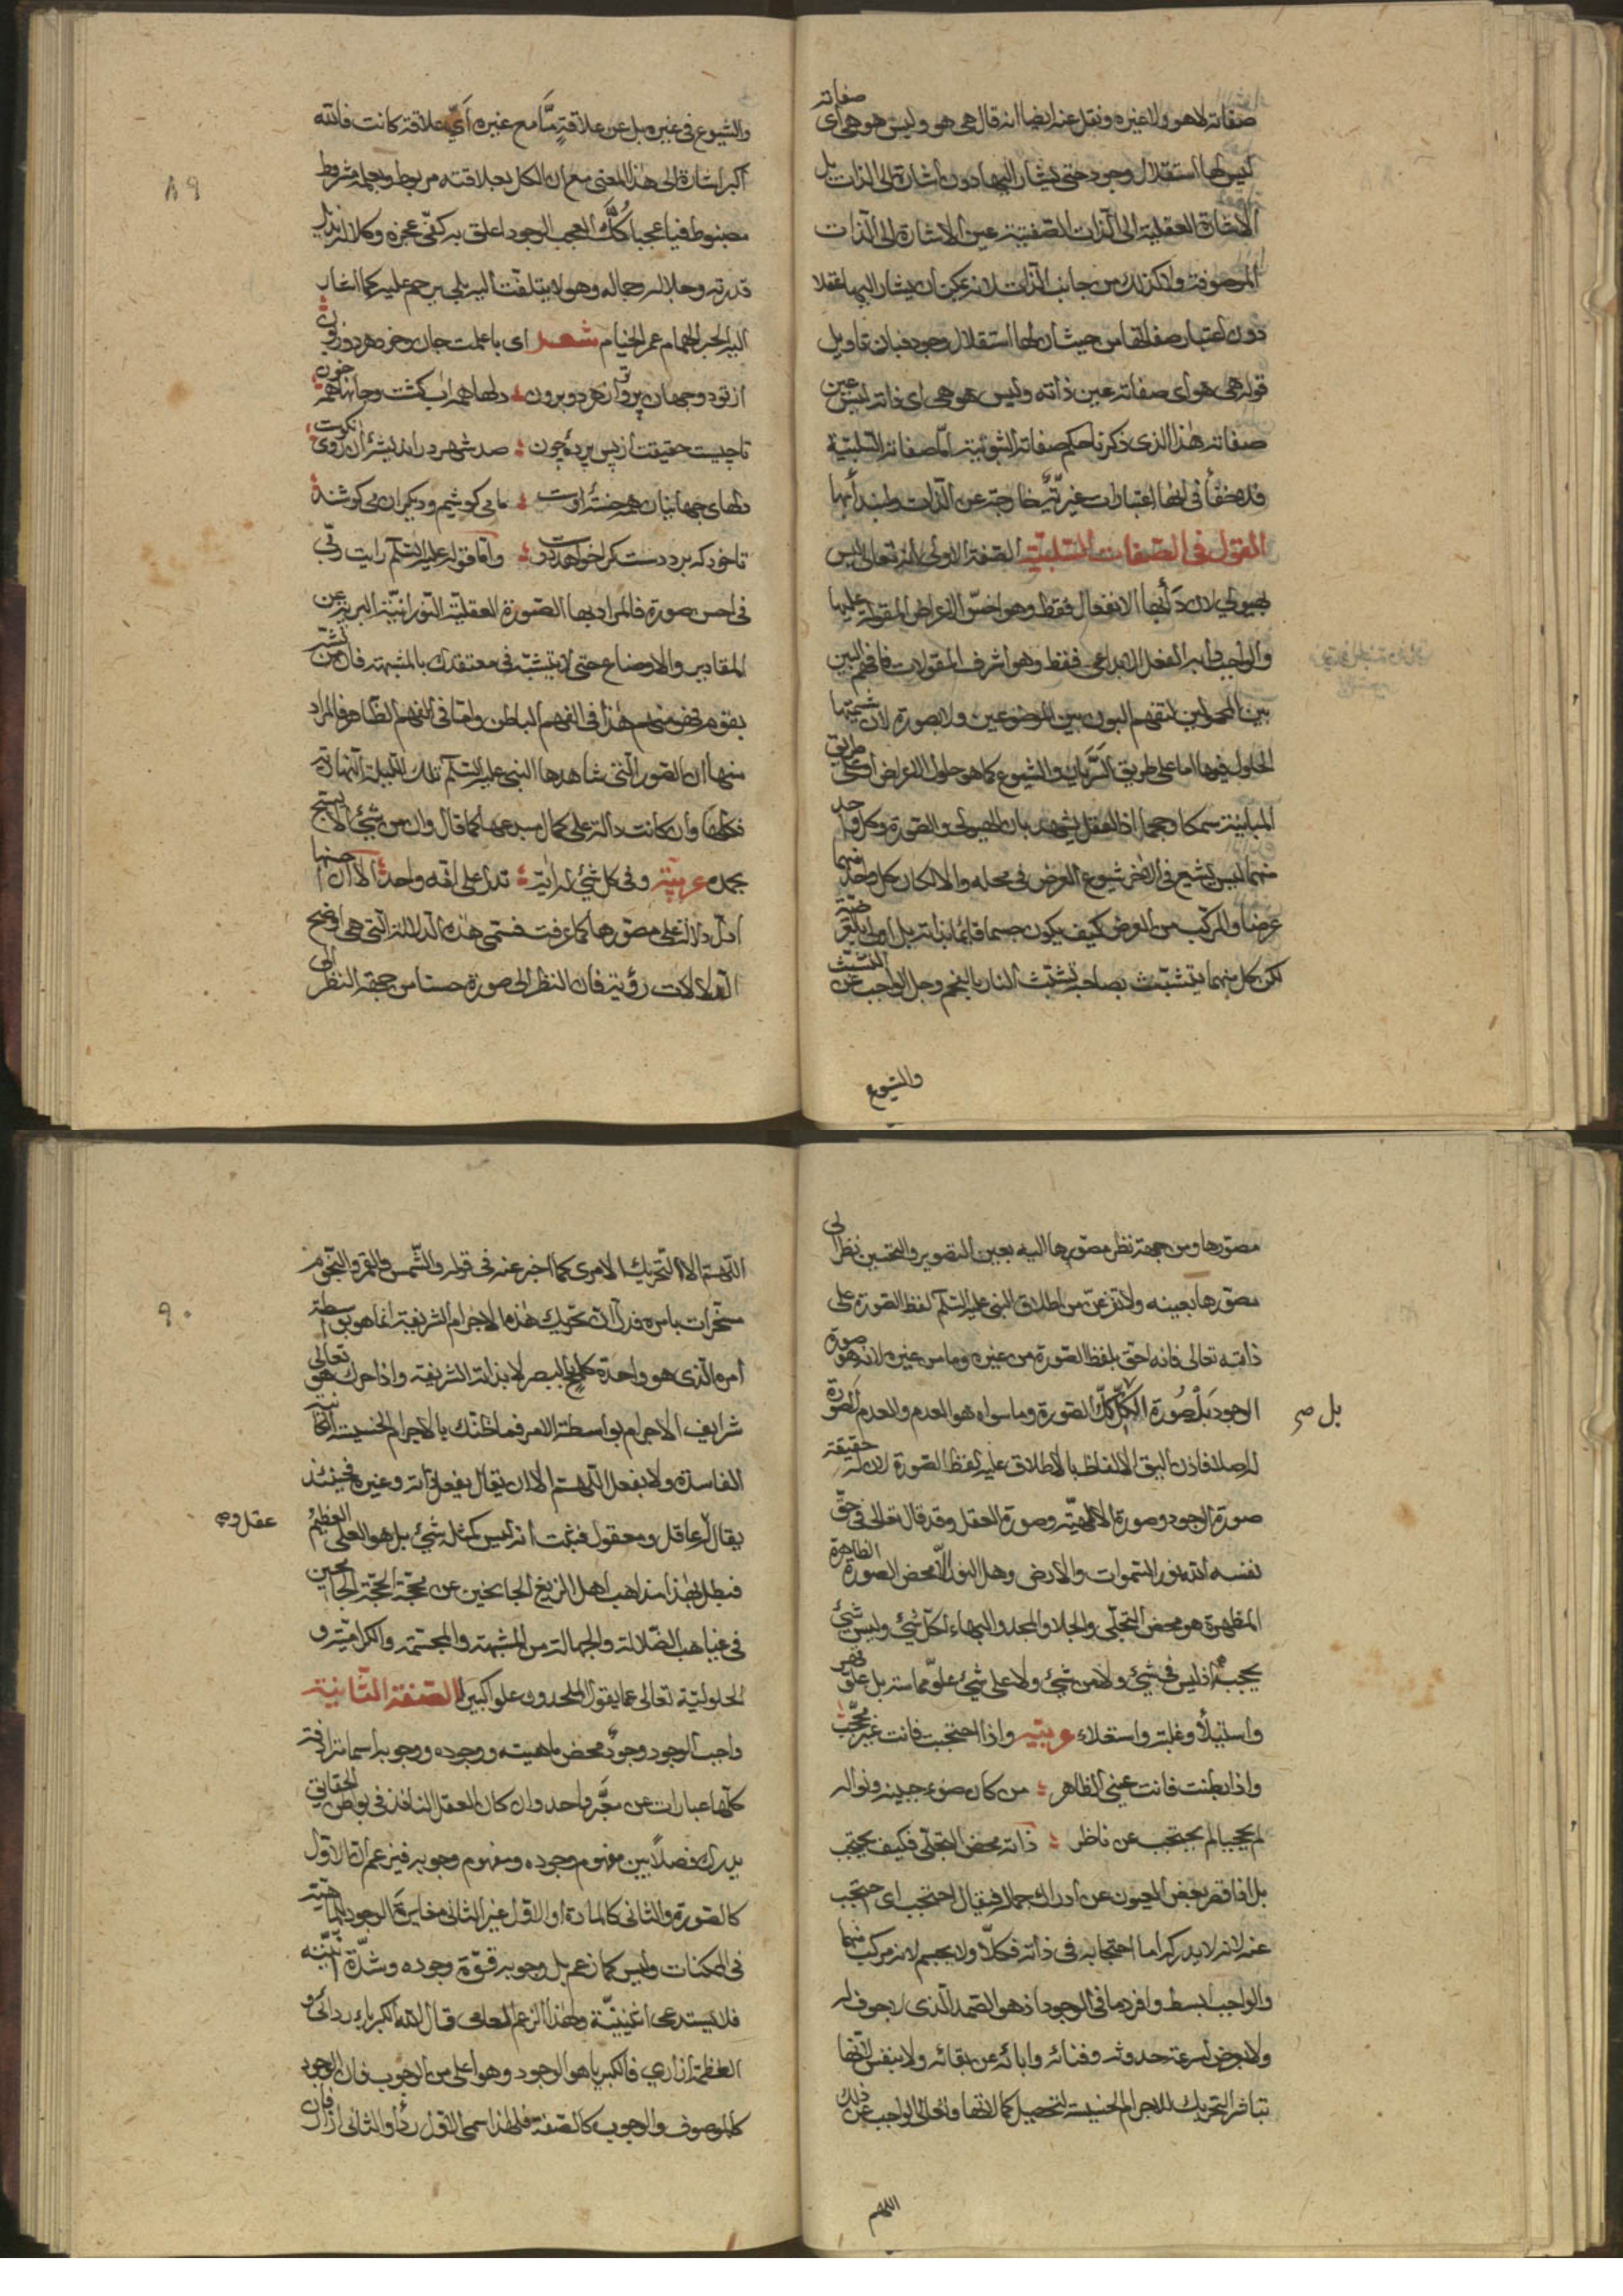 صفاته لا هو ولا غيره ونقل عنه ايضا انه قال هي هو وليس هو هي اى صفاته
ليس لها استقلال وجود حتى يشار اليها دون اشارة الى الذات بل
الاشارة العقلية الى الذات الصفتية عين الاشارة الى الذات
الموصوفة ولا كذلك من جانب الذات لانه يمكن ان يشار اليها عقلا
دون اعتبار صفاتها من حيث ان لها استقلال وجود فبان تاويل
قوله هي هو اى صفاته عين ذاته وليس هو هي اى ذاته ليس عين
صفاته هذا الذى ذكرنا حكم صفاته الثبوتية امّا صفاته السلبيّة
في انها اعتبارات غير خارجة عن الذات ولنبدأ بها
القول في الصفات السّلبيّة الصّفة الاولى انه تعالى ليس
بهيولى لان دأبها الانفعال فقط وهو اخسّ الاعراض المقولة عليها
والواجب دابه الفعل الابداعى فقط وهو اشرف المقولات فافهم البين
بين المحمولين لتفهم البون بين الموضوعين ولا بصورة لان شيمتها
الحلول فيها اما على طريق السّريان والشيوع كما هو حلول الاعراض او على طريق
المباينة سمكا وحجما اذ العقل يشهد بان الهيولى والصّورة وكل واحد
منهما ليس يشيع في الاخر شيوع العرض في محله والا لكان كل واحد منهما
عرضا والمركّب من العرض كيف يكون جسما قائما بذاته بل
لكن كل منهما يتشبّث بصاحبه تشبّث النار بالفحم وجل الواجب عن التشبّث
والشيوع
والشيوع في غيره بل عن علاقةٍ مّا مع غيره اىّ علاقة كانت فالله
اكبر اشارة الى هذا المعنى مع ان الكل بعلاقته مربوط وبعلمه مشروط
مضبوط فيا عجبا كُلّ العجب الوجود اعلق به
قدرته وجلاله وجماله وهو لا يتلفّت اليه بلى يرحم عليه كما اشار
اليه الحبر الهمام عمر الخيام شعر اى باعلمت جان وخرد هر دو زبون
از تو دو جهان پر وتو از هر دو برون دلها همه اب كشت وجانها همه خون
تا چيست حقيقت از پس پرده چون صد شهر در انديشهٔ آن روى نكوست
دلهاى جهانيان همه خستهٔ اوست ما مى كوشيم وديكران مى كوشند
تا خود كه برد دست كرا خواهد دوست وامّا قوله عليه السّلم رايت ربّى
في احسن صورة فالمراد بها الصّورة العقليّة النّورانيّة البريّة عن
المقادير والاوضاع حتى لا يتشبّه في معتقدك بالمشبّهة فان من تشبّه
بقوم فهو منهم هذا في الفهم الباطن وامّا في الفهم الظّاهر فالمراد
منها ان الصّور الّتى شاهدها النبى عليه السّلم تلك الليلة
فكلّها وان كانت دالة على كمال مبدعها كما قال وان من شئ الا يسبّح
بحمده عربيّة وفي كل شئ له اية تدلّ على انّه واحدٌ الا ان احسنها
ادلّ دلالة على مصوّرها كما عرفت فسمّى هذه الدلالة الّتى هي اوضح
الدلالات رؤية فان النظر الى صورة حسناء من جهة النظر الى
مصوّرها ومن جهة نظر مصوّرها اليه بعين التصوير والتحسين نظر الى
مصوّرها بعينه ولا تفزعنّ من اطلاق النبى عليه السّلم لفظ الصّورة على
ذاته تعالى فانه احقّ بلفظ الصّورة من غيره وما من غيره لانه هو صورة
الوجود بَلْ صُورَة الكُلّ كلّ الصّورة وما سواه هو العدم والعدم لا صورة
بل صح
له اصلا فاذن اليق الالفاظ بالاطلاق عليه لفظ الصّورة لان له حقيقة
صورة الوجود وصورة الالهيّة وصورة العقل وقد قال تعالى في حقّ
نفسه الله نور السّموات والارض وهل النور الّا محض الصورة الظاهرة
المظهرة هو محض التجلّى والجلا والمجد والبهاء لكلّ شئ وليس شئ
يحجبه اذ ليس في شئ ولا من شئ ولا على شئ علوّ مماسة بل علوّ قهر
واستيلأ وغلبة واستعلاء عربيّة واذا احتجبت فانت غير محجّب
واذا بطنت فانت عين الظاهر من كان ضوء جبينه ونواله
لم يحجبا لم يحتجب عن ناظر ذاته محض التجلّى فكيف يحتجب
بل اذا قصر بعض العيون عن ادراك جماله فيقال احتجب اى احتجب
عنه لانه لا يدركه اما احتجابه في ذاته فكلّا ولا بجسم لانه مركب منهما
والواجب ابسط وافرد ما في الوجود اذ هو الصّمد الّذى لا جوف له
ولا بعرض لسرعة حدوثه وفنائه وابائه عن بقائه ولا بنفس لانّها
تباشر التحريك للاجرام الخسيسة لتحصيل كمالاتها وتعالى الواجب عن ذلك
اللهم
اللّهمّ الا التّحريك الامرى كما اخبر عنه في قوله والشّمس والقمر والنّجوم
مسخّرات بامره فدلّ انّ تحريك هذه الاجرام الشريفة انما هو بواسطة
امره الّذى هو واحدة كلمح بالبصر لا بذاته الشريفة واذا حرك هو تعالى
شرايف الاجرام بواسطة الامر فما ظنّك بالاجرام الخسيسة
الفاسدة ولا بفعل اللّهمّ الا ان يقال بفعل ذاته وغيره فحينئذ
يقال له عاقل ومعقول فثبت انه ليس كمثله شئ بل هو العلى العظيم
عقل وصح
فبطل بهذا مذاهب اهل الزيغ الجانحين عن محجّة الحجّة
في غياهب الضّلالة والجهالة من المشبهة والمجسّمة والكراميّة و
الحلوليّة تعالى عمّا يقول الملحدون علوا كبيرا الصّفة الثّانية
واجب الوجود وجوده محض ماهيته ووجوده ووجوبه اسما مترادفة
كلّها عبارات عن معبَّر واحد وان كان العقل النافذ في بواطن الحقايق
يدرك فصلاً بين مفهوم وجوده ومفهوم وجوبه فيزعم انّ الاوّل
كالصّورة والثانى كالمادة او الاوّل غير الثانى مغايرة الوجود الماهيّة
في الممكنات وليس كما زعم بل وجوبه قوّة وجوده وشدّة
فلا يستدعى اثنينيّة ولهذا الزعم قال الله الكبرياء ردائى و
العظمة ازارى فالكبرياء هو الوجود وهو اعلى من الوجوب فان الوجود
كالموصوف والوجوب كالصّفة فلهذا سمى الاوّل ردأ والثانى ازارا
٨٩
٩٠